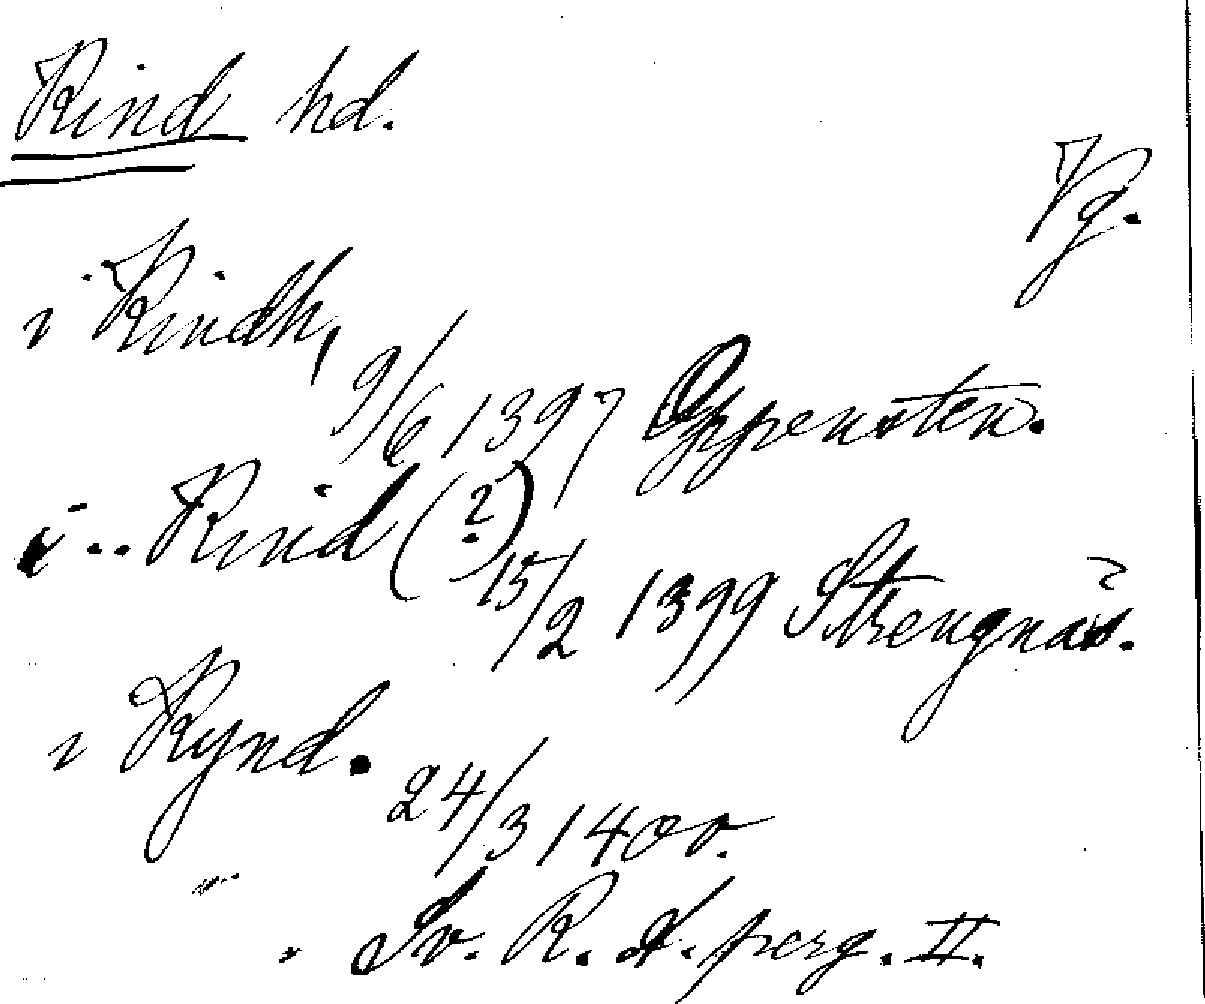 Kind hd.
Vg.
i Kindh,
9/6 1397 Oppensten.
i .. Kind (?)
15/2 1399 Strengnäs.
i Kynd.
24/3 1400.
Sv. R. A. perg. II.